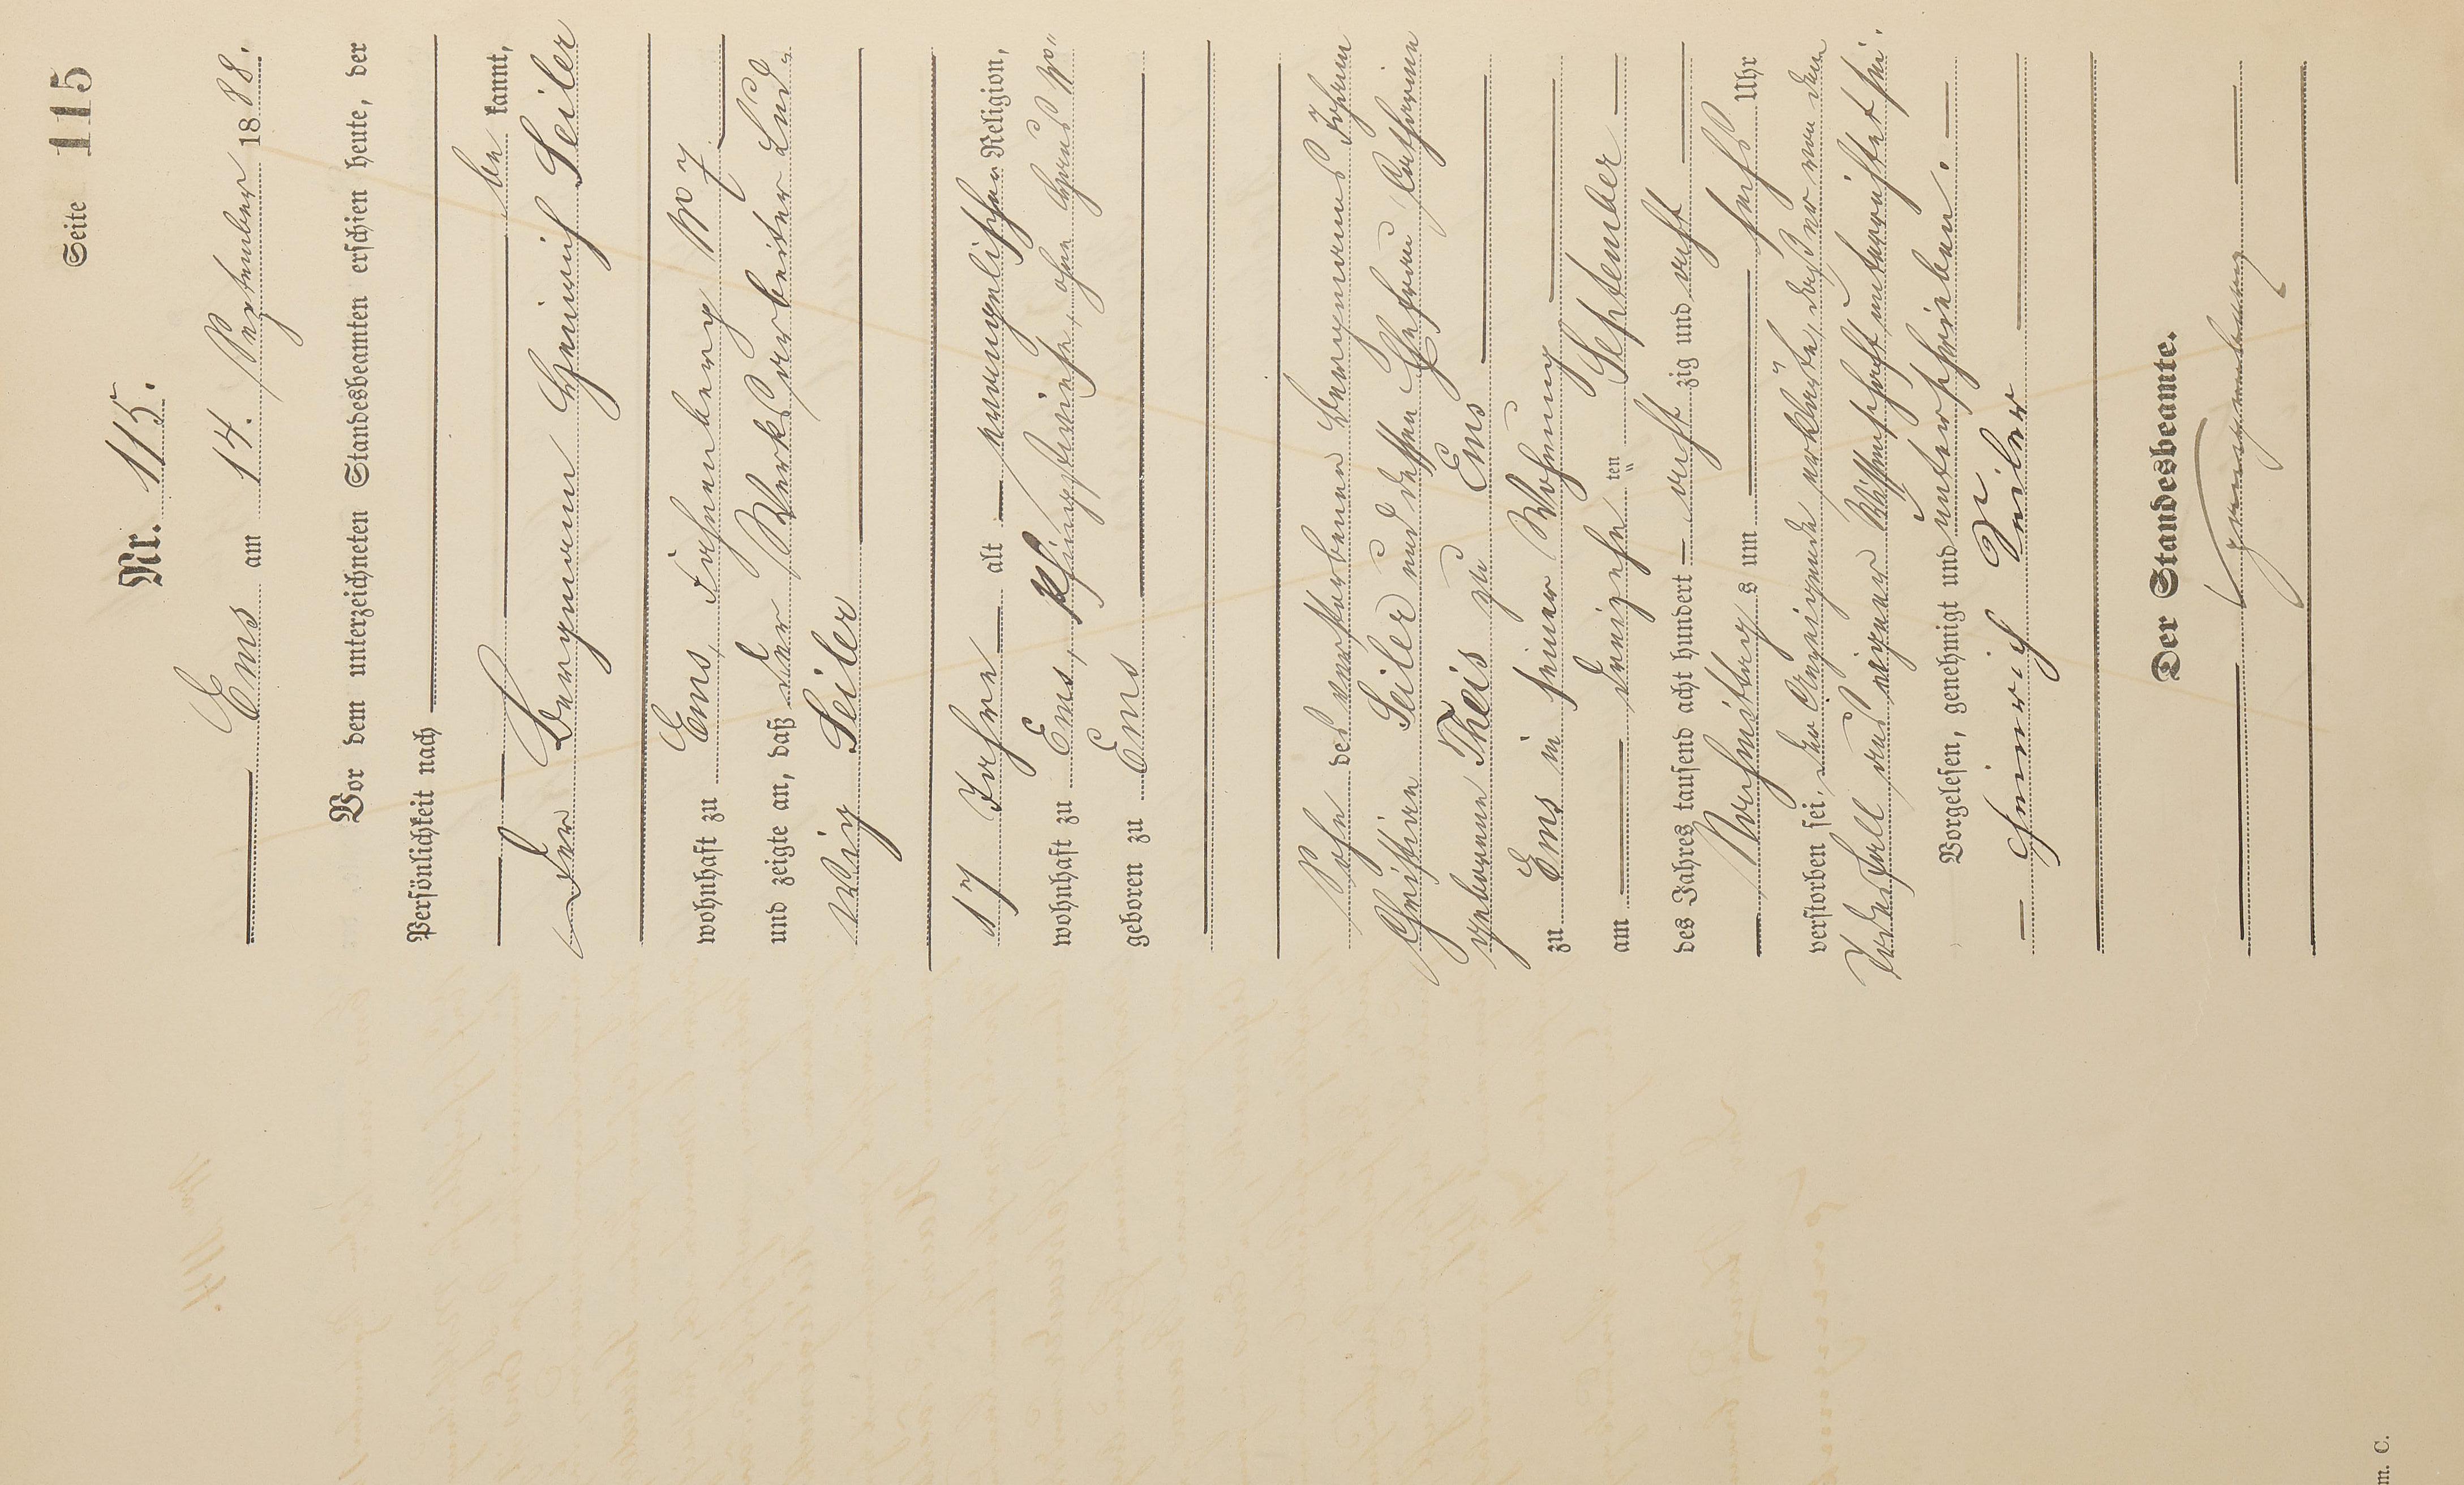 Seite 115
Nr. 115.
Ems am 14. September 1888.
Vor dem unterzeichneten Standesbeamten erschien heute, der
Persönlichkeit nach
be kannt,
der Bergmann Heinrich Seiler
wohnhaft zu Ems, Nº 7
und zeigte an, daß der Werksarbeiter Lud-
wig Seiler
17 Jahre alt evangelischer Religion,
wohnhaft zu Ems, Pfingstwiese, ohne Haus Nº
geboren zu Ems
Sohn des verstorbenen Bergmanns Johann
Christian Seiler und dessen Ehefrau Catharina
geborenen Theis zu Ems
zu Ems in seiner Wohnung
am dreizehn ten September
des Jahres tausend acht hundert acht zig und acht
Nachmittag s um sechs Uhr
verstorben sei, der Anzeigende erklärte, daß er von dem
Todesfall aus eigener Wissenschaft unterrichtet sei.
Vorgelesen, genehmigt und unterschrieben.
Heinrich Seiler
Der Standesbeamte.
m. C.